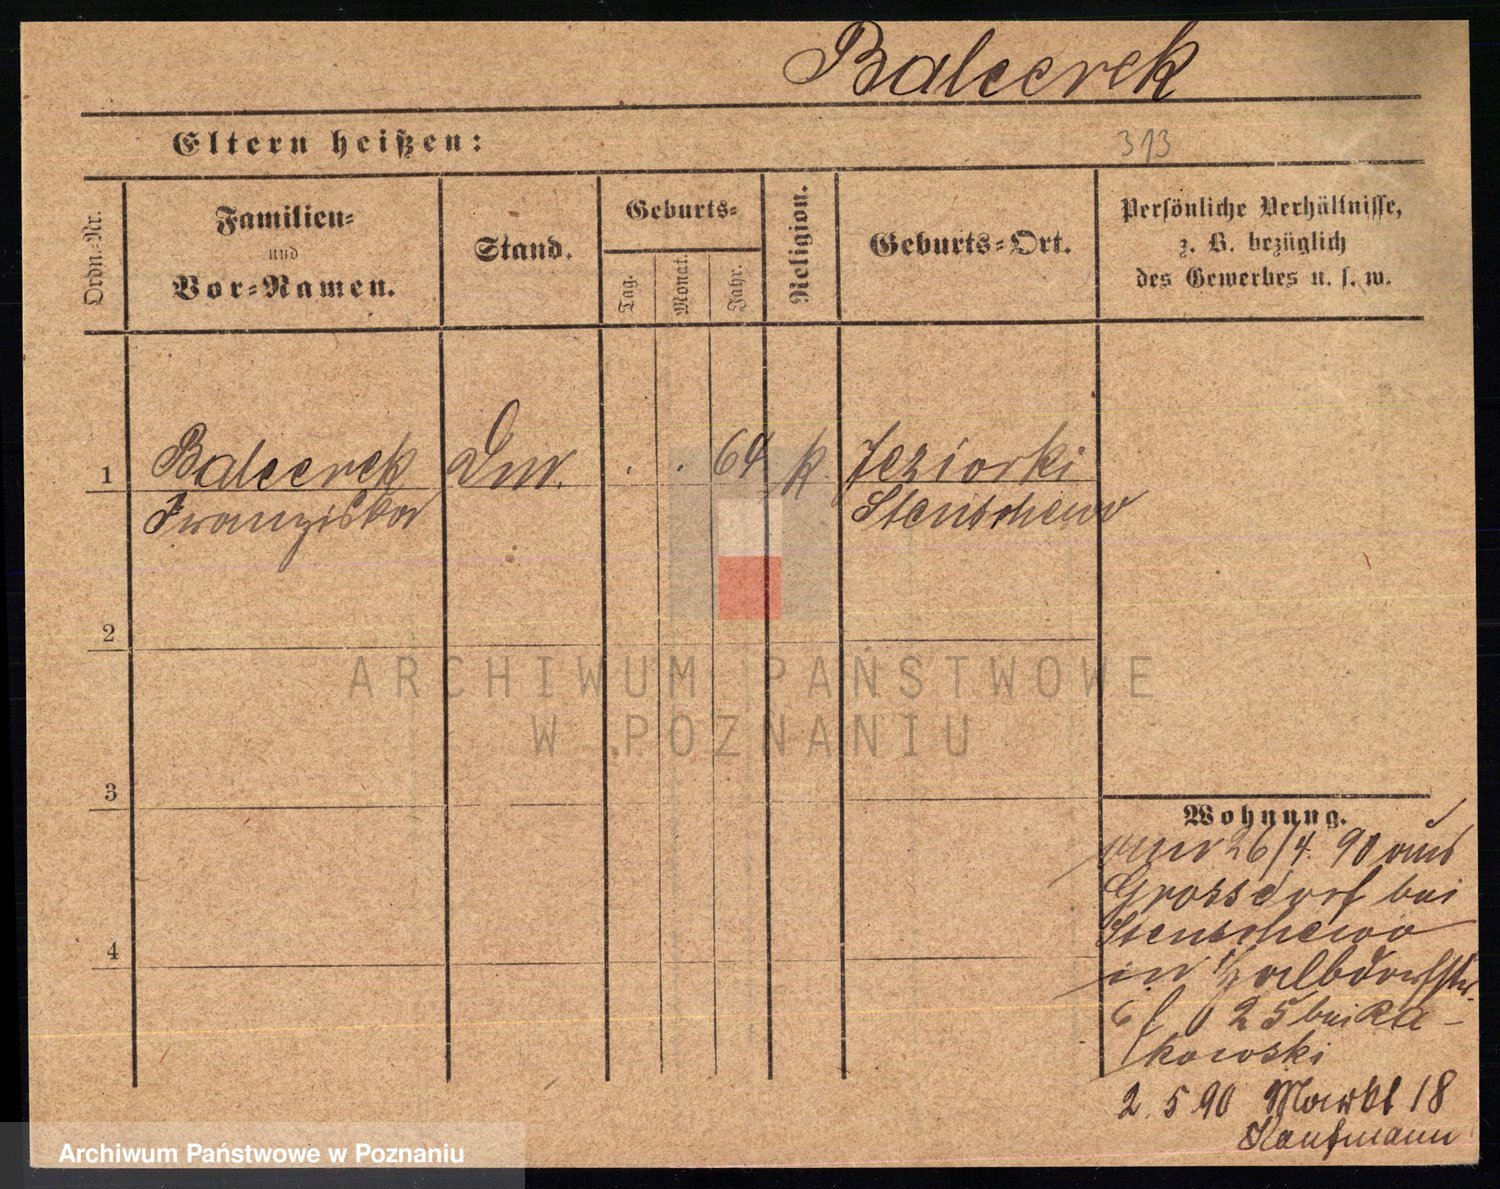 Balcerek
Eltern heißen:
313
Ordn.-Nr.
Familien-
und
Vor-Namen.
Stand.
Geburts-
Tag.
Monat.
Jahr.
Religion.
Geburts-Ort.
Persönliche Verhältnisse,
z. B. bezüglich
des Gewerbes u. s. w.
1 Balcerek 64 k Jeziorki
Franziska Stenschewo
2
3
4
Wohnung.
26/4. 90 aus
Grossdorf bei
Stenschewo
in Halbdorfstr.
25 bei Ra-
kowski
2. 5 90 Markt 18
Kaufmann
ARCHIWUM PAŃSTWOWE
W POZNANIU
Archiwum Państwowe w Poznaniu